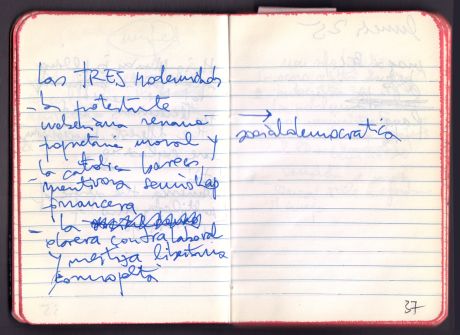 Las TRES modernidades
- la protestante
weberiana renana
propietaria moral y
- la católica barroca
mentirosa semio
financera
- la
obrera contralaboral
y mestiza libertaria
→
socialdemocratica
37